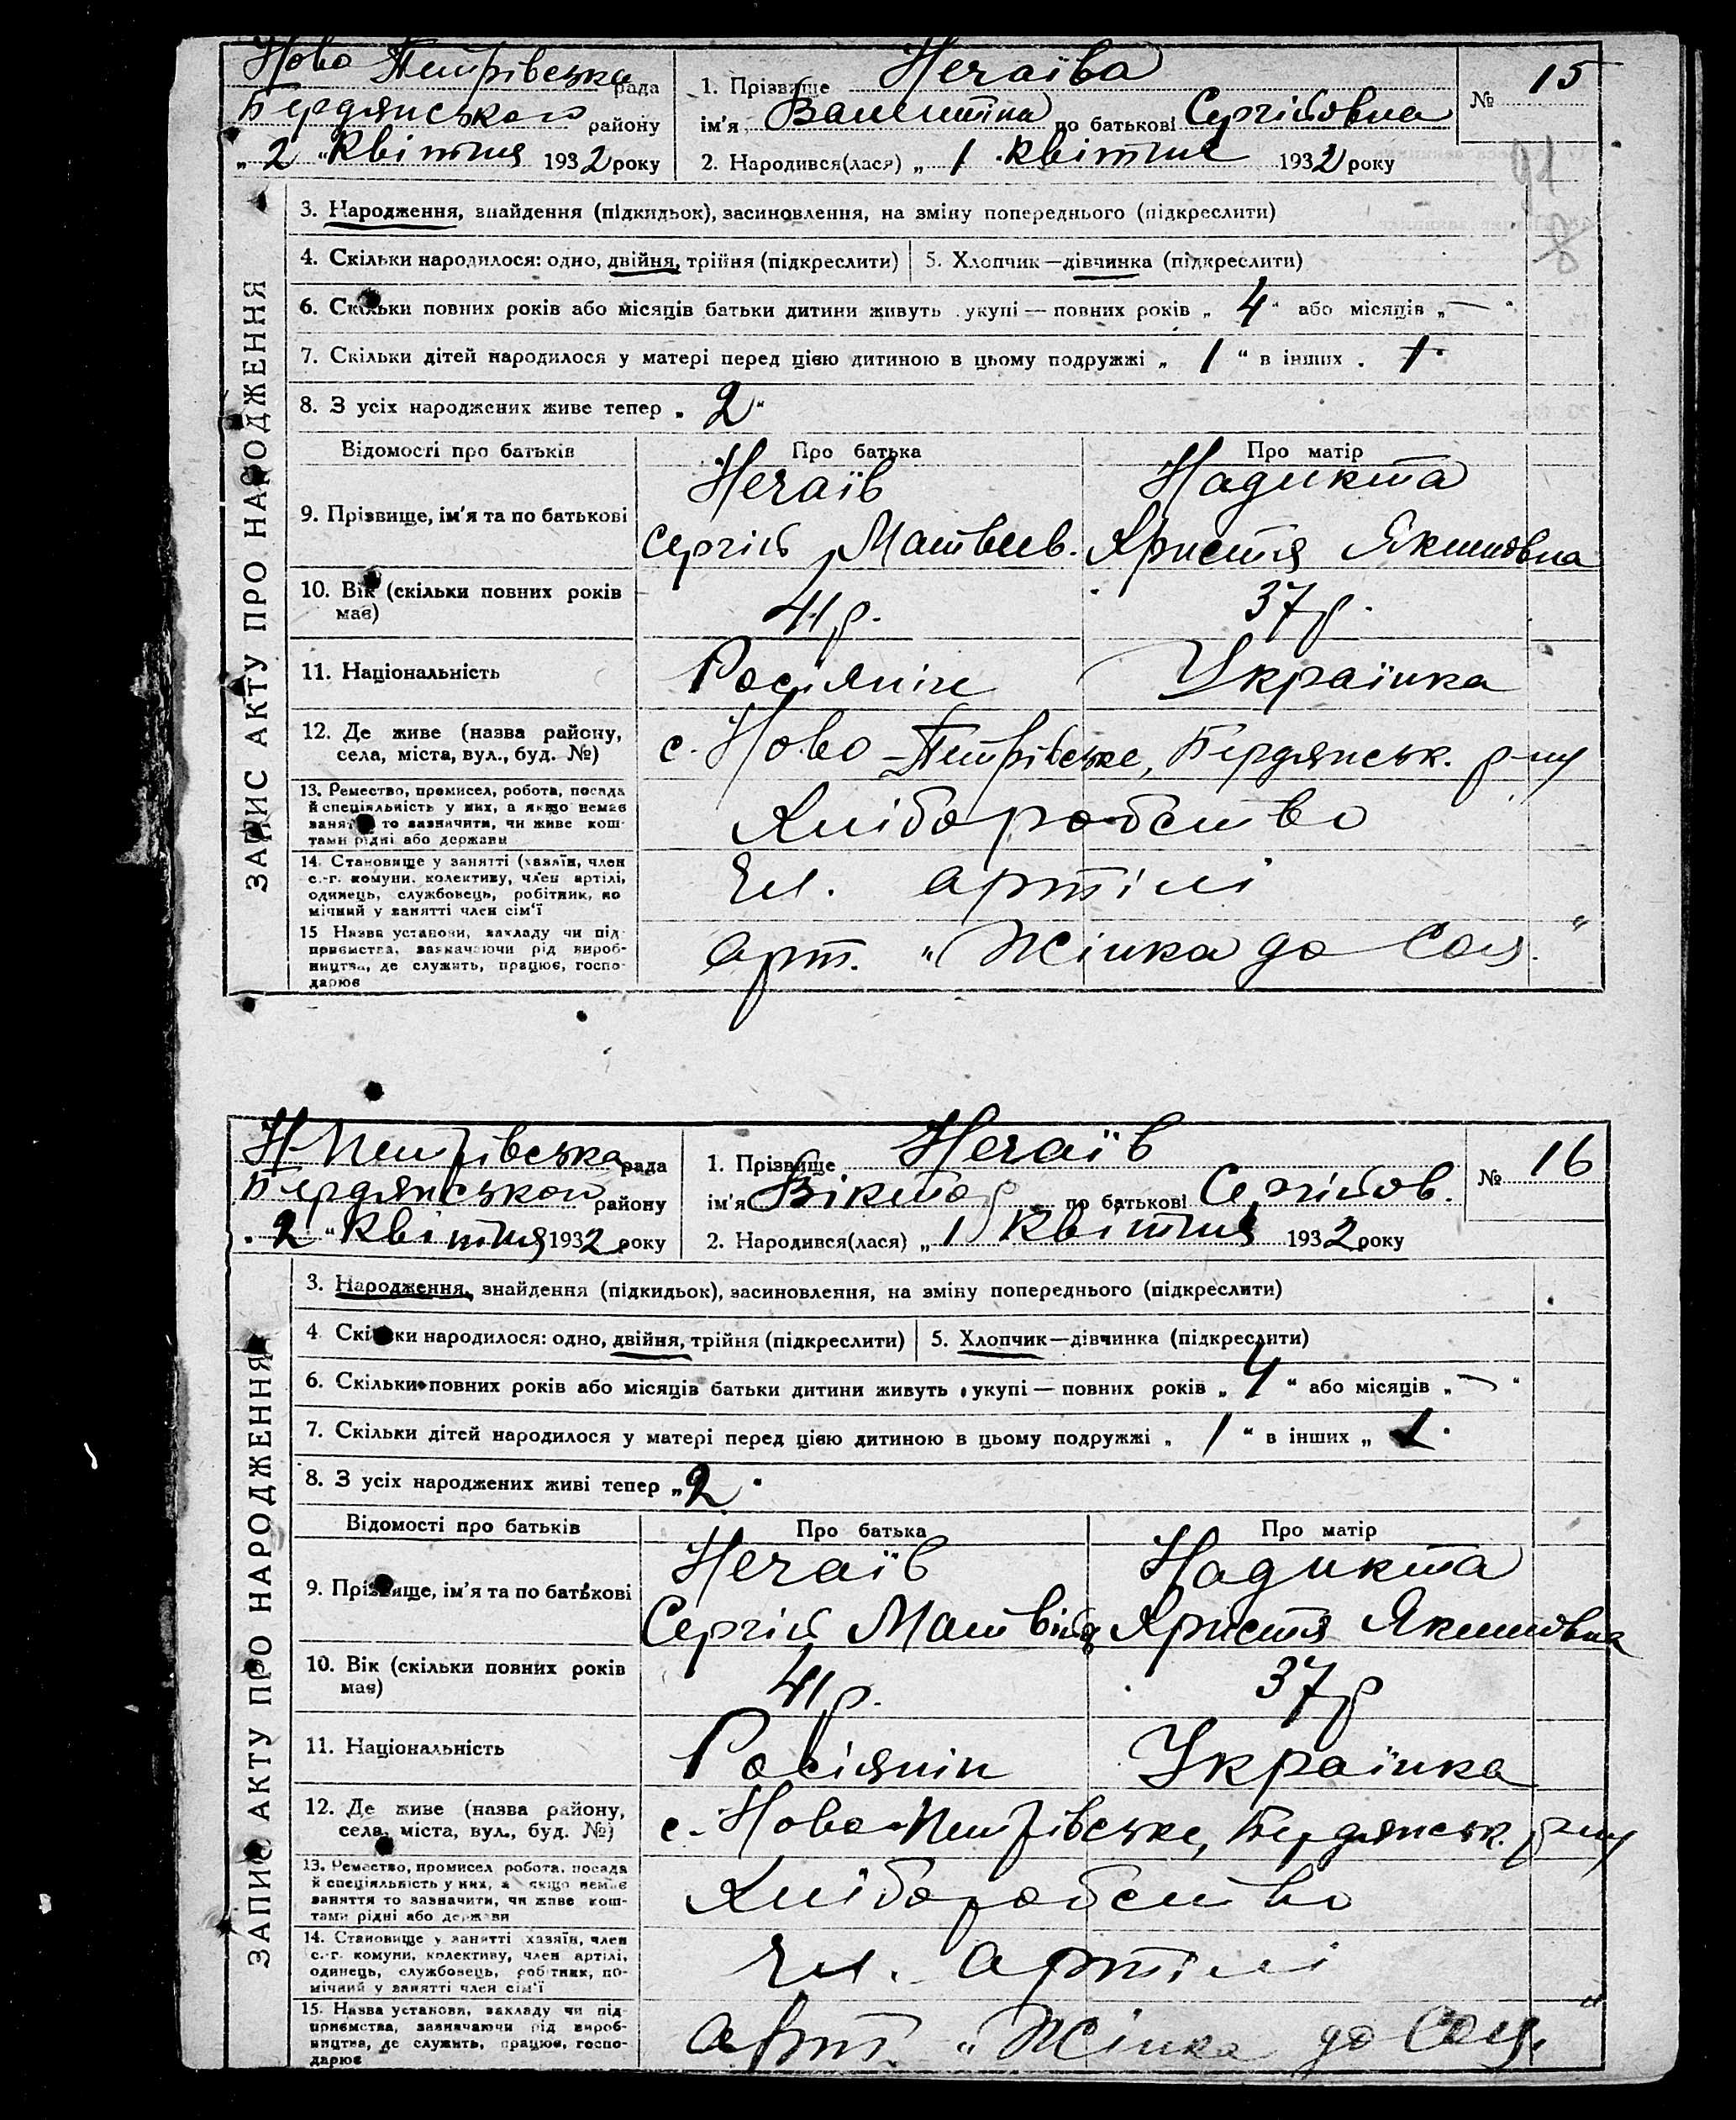 Ново Петрівська рада
Бердянського району
„ 2 " Квітня 1932 року
1. Прізвище Нечаїва
ім'я Валентіна по батькові Сергійовна
2. Народився(лася) „ 1 . Квітня 1932 року
№ 15
91
8
ЗАПИС АКТУ ПРО НАРОДЖЕННЯ
3. Народження, знайдення (підкидьок), засиновлення, на зміну попереднього (підкреслити)
4. Скільки народилося: одно, двійня, трійня (підкреслити) 5. Хлопчик—дівчинка (підкреслити)
6. Скільки повних років або місяців батьки дитини живуть укупі — повних років „ 4 " або місяців „ — "
7. Скільки дітей народилося у матері перед цією дитиною в цьому подружжі „ 1 " в інших „ 1 "
8. З усіх народжених живе тепер „ 2 "
Відомості про батьків Про батька Про матір
9. Прізвище, ім'я та по батькові
Нечаїв Надикта
Сергій Матвеев. Христя Якимовна
10. Вік (скільки повних років має) 41 р. 37 р.
11. Національність Росіянін Українка
12. Де живе (назва району, села, міста, вул., буд. №) с. Ново-Петрівське, Бердянськ. р-ну
13. Ремество, промисел, робота, посада
й спеціяльність у них, а якщо немає
заняття то зазначити, чи живе кош-
тами рідні або держави
Хліборобство
14. Становище у занятті (хазяїн, член
с.-г. комуни, колективу, член артілі,
одинець, службовець, робітник, по
мічний у занятті член сім'ї
Чл. артілі
15 Назва установи, закладу чи під-
приємства, зазначаючи рід вироб-
ництва, де служить, працює, госпо-
дарює
Арт. „Жінка до Соц."
Н-Петрівська рада
Бердянського району
„ 2 " Квітня 1932 року
1. Прізвище Нечаїв
ім'я Віктор по батькові Сергійов.
2. Народився(лася) „ 1 Квітня 1932 року
№ 16
ЗАПИС АКТУ ПРО НАРОДЖЕННЯ
3. Народження, знайдення (підкидьок), засиновлення, на зміну попереднього (підкреслити)
4. Скільки народилося: одно, двійня, трійня (підкреслити) 5. Хлопчик—дівчинка (підкреслити)
6. Скільки повних років або місяців батьки дитини живуть укупі — повних років „ 4 " або місяців „ — "
7. Скільки дітей народилося у матері перед цією дитиною в цьому подружжі „ 1 " в інших „ 1 "
8. З усіх народжених живі тепер „ 2 "
Відомості про батьків Про батька Про матір
9. Прізвище, ім'я та по батькові
Нечаїв Надикта
Сергій Христя Якимовна
10. Вік (скільки повних років має) 41 р. 37 р
11. Національність Росіянін Українка
12. Де живе (назва району, села, міста, вул., буд. №) с. Ново-Петрівське, Бердянськ. р-ну
13. Ремество, промисел робота, посада
й спеціяльність у них, а якщо немає
заняття то зазначити, чи живе кош-
тами рідні або держави
Хліборобство
14. Становище у занятті хазяїн, член
с.-г. комуни, колективу, член артілі,
одинець, службовець, робітник, по-
мічний у занятті член сім'ї
Чл. артілі
15. Назва установи, закладу чи під-
приємства, зазначаючи рід вироб-
ництва, де служить, працює, госпо-
дарює
Арт. „Жінка до Соц."